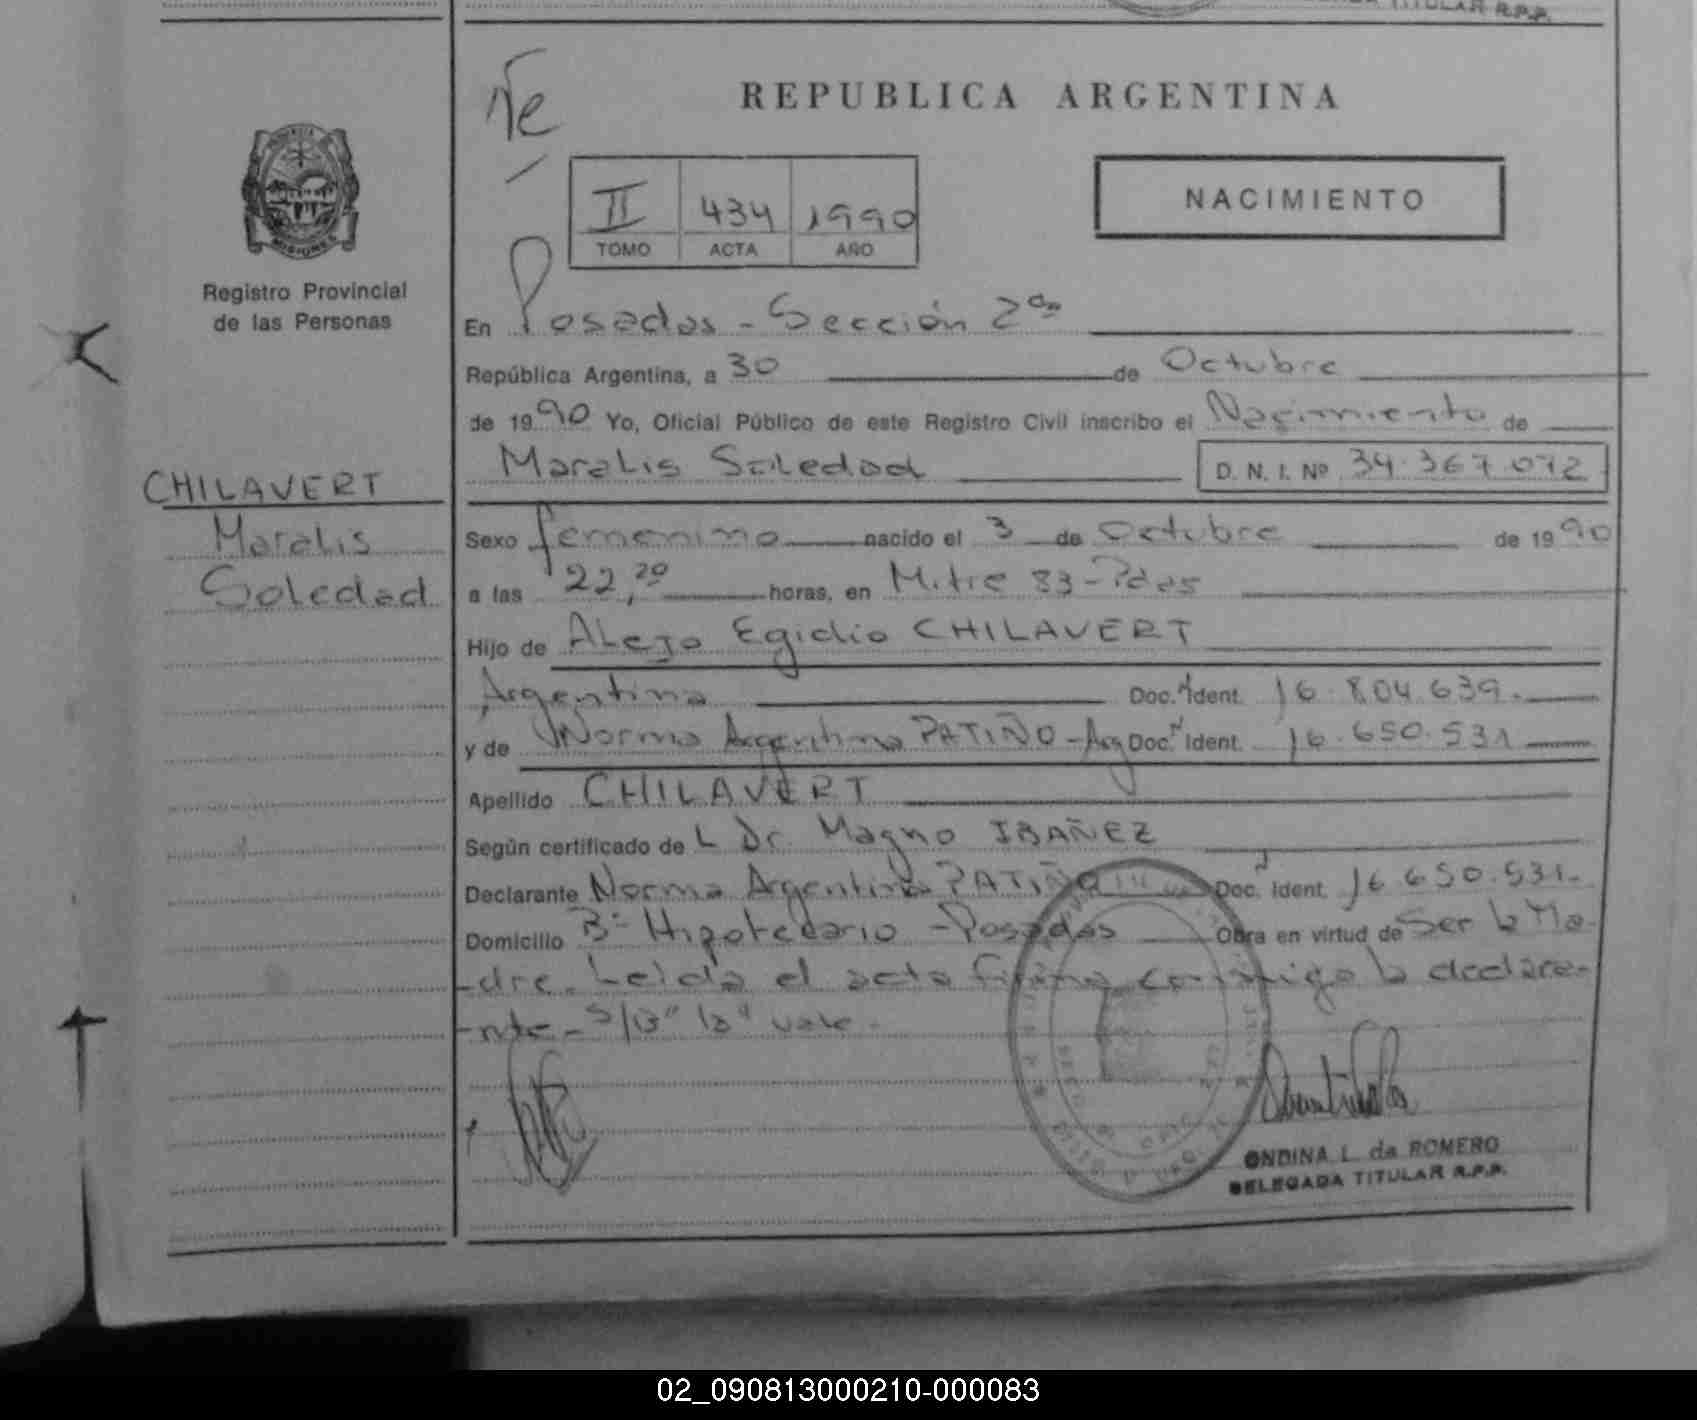 TITULAR R.P.P.
REPUBLICA ARGENTINA
Ne
NACIMIENTO
II 434 1990
TOMO ACTA AÑO
PROVINCIA
MISIONES
Registro Provincial
de las Personas
En Posadas - Sección 2da
República Argentina, a 30 de Octubre
de 1990 Yo, Oficial Público de este Registro Civil inscribo el Nacimiento de
Maralis Soledad D. N. I. Nº 34.367.072
CHILAVERT
Maralis
Soledad
Sexo femenino nacido el 3 de Octubre de 1990
a las 22,20 horas, en Mitre 83-Pdas
Hijo de Alejo Egidio CHILAVERT
Argentina Doc. Ident. 16.804.639.-
y de Norma Argentina PATIÑO-Arg Doc. Ident. 16.650.531
Apellido CHILAVERT
Según certificado de L Dr. Magno IBAÑEZ
Declarante Norma Argentina PATIÑO Doc. Ident. 16.650.531.-
Domicilio Bº Hipotecario - Posadas Obra en virtud de Ser la Ma-
-dre. Leída el acta firma conmigo la declara-
-nte- S/B" vale.-
ONDINA L. de ROMERO
DELEGADA TITULAR R.P.P.
02_090813000210-000083